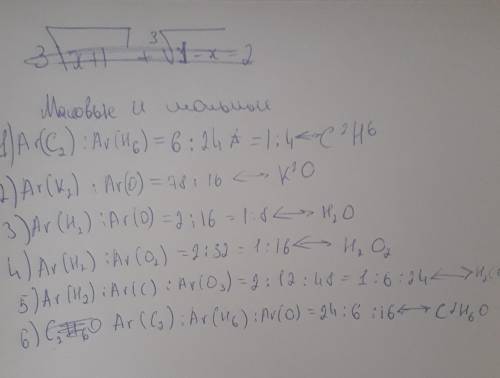 3√x+1 + ³√1-x = 2
Массовые и мольные
1) Ar(C₂) : Ar(H₆) = 6 : 24 = 1:4 <-> C²H6
2) Ar(K₂) : Ar(O) = 78 : 16 <-> K²O
3) Ar(H₂) : Ar(O) = 2 : 16 = 1:8 <-> H₂O
4) Ar(H₂) : Ar(O₂) = 2 : 32 = 1:16 <-> H₂O₂
5) Ar(H₂) : Ar(C) : Ar(O₃) = 2 : 12 : 48 = 1 : 6 : 24 <->
6) Ar(C₂) : Ar(H₆) : Ar(O) = 24 : 6 : 16 <-> C²H₆O